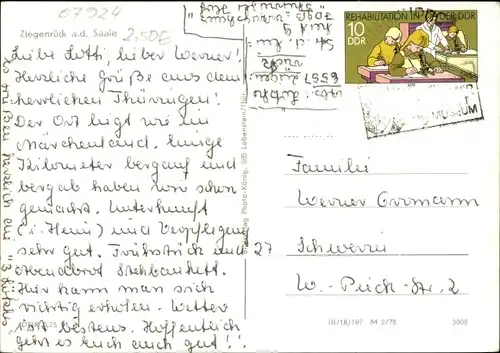 07924
2,50E
Ziegenrück a.d. Saale
Liebe Lotti, lieber Werner!
Herzliche Grüße aus dem
herrlichen Thüringen!
Der Ort liegt wie im
Märchenland. Einige
Kilometer bergauf und
bergab haben wir schon
gemacht. Unterkunft
(i. Heim) und Verpflegen
sehr gut. Frühstück und
Abendbrot Stehbankett.
Hier kann man sich
richtig erholen. Wetter
ist bestens. Hoffentlich
geht es Euch auch gut!
Es grüßen herzlich die
Verlag Photo-König, 685 Lobenstein/Thür.
6557
REHABILITATION IN DER DDR
10
DDR
MUSEUM
Familie
Werner Ortmann
27 Schwerin
W.-Pieck-Str. 2
III/18/197 M 2/78 5008